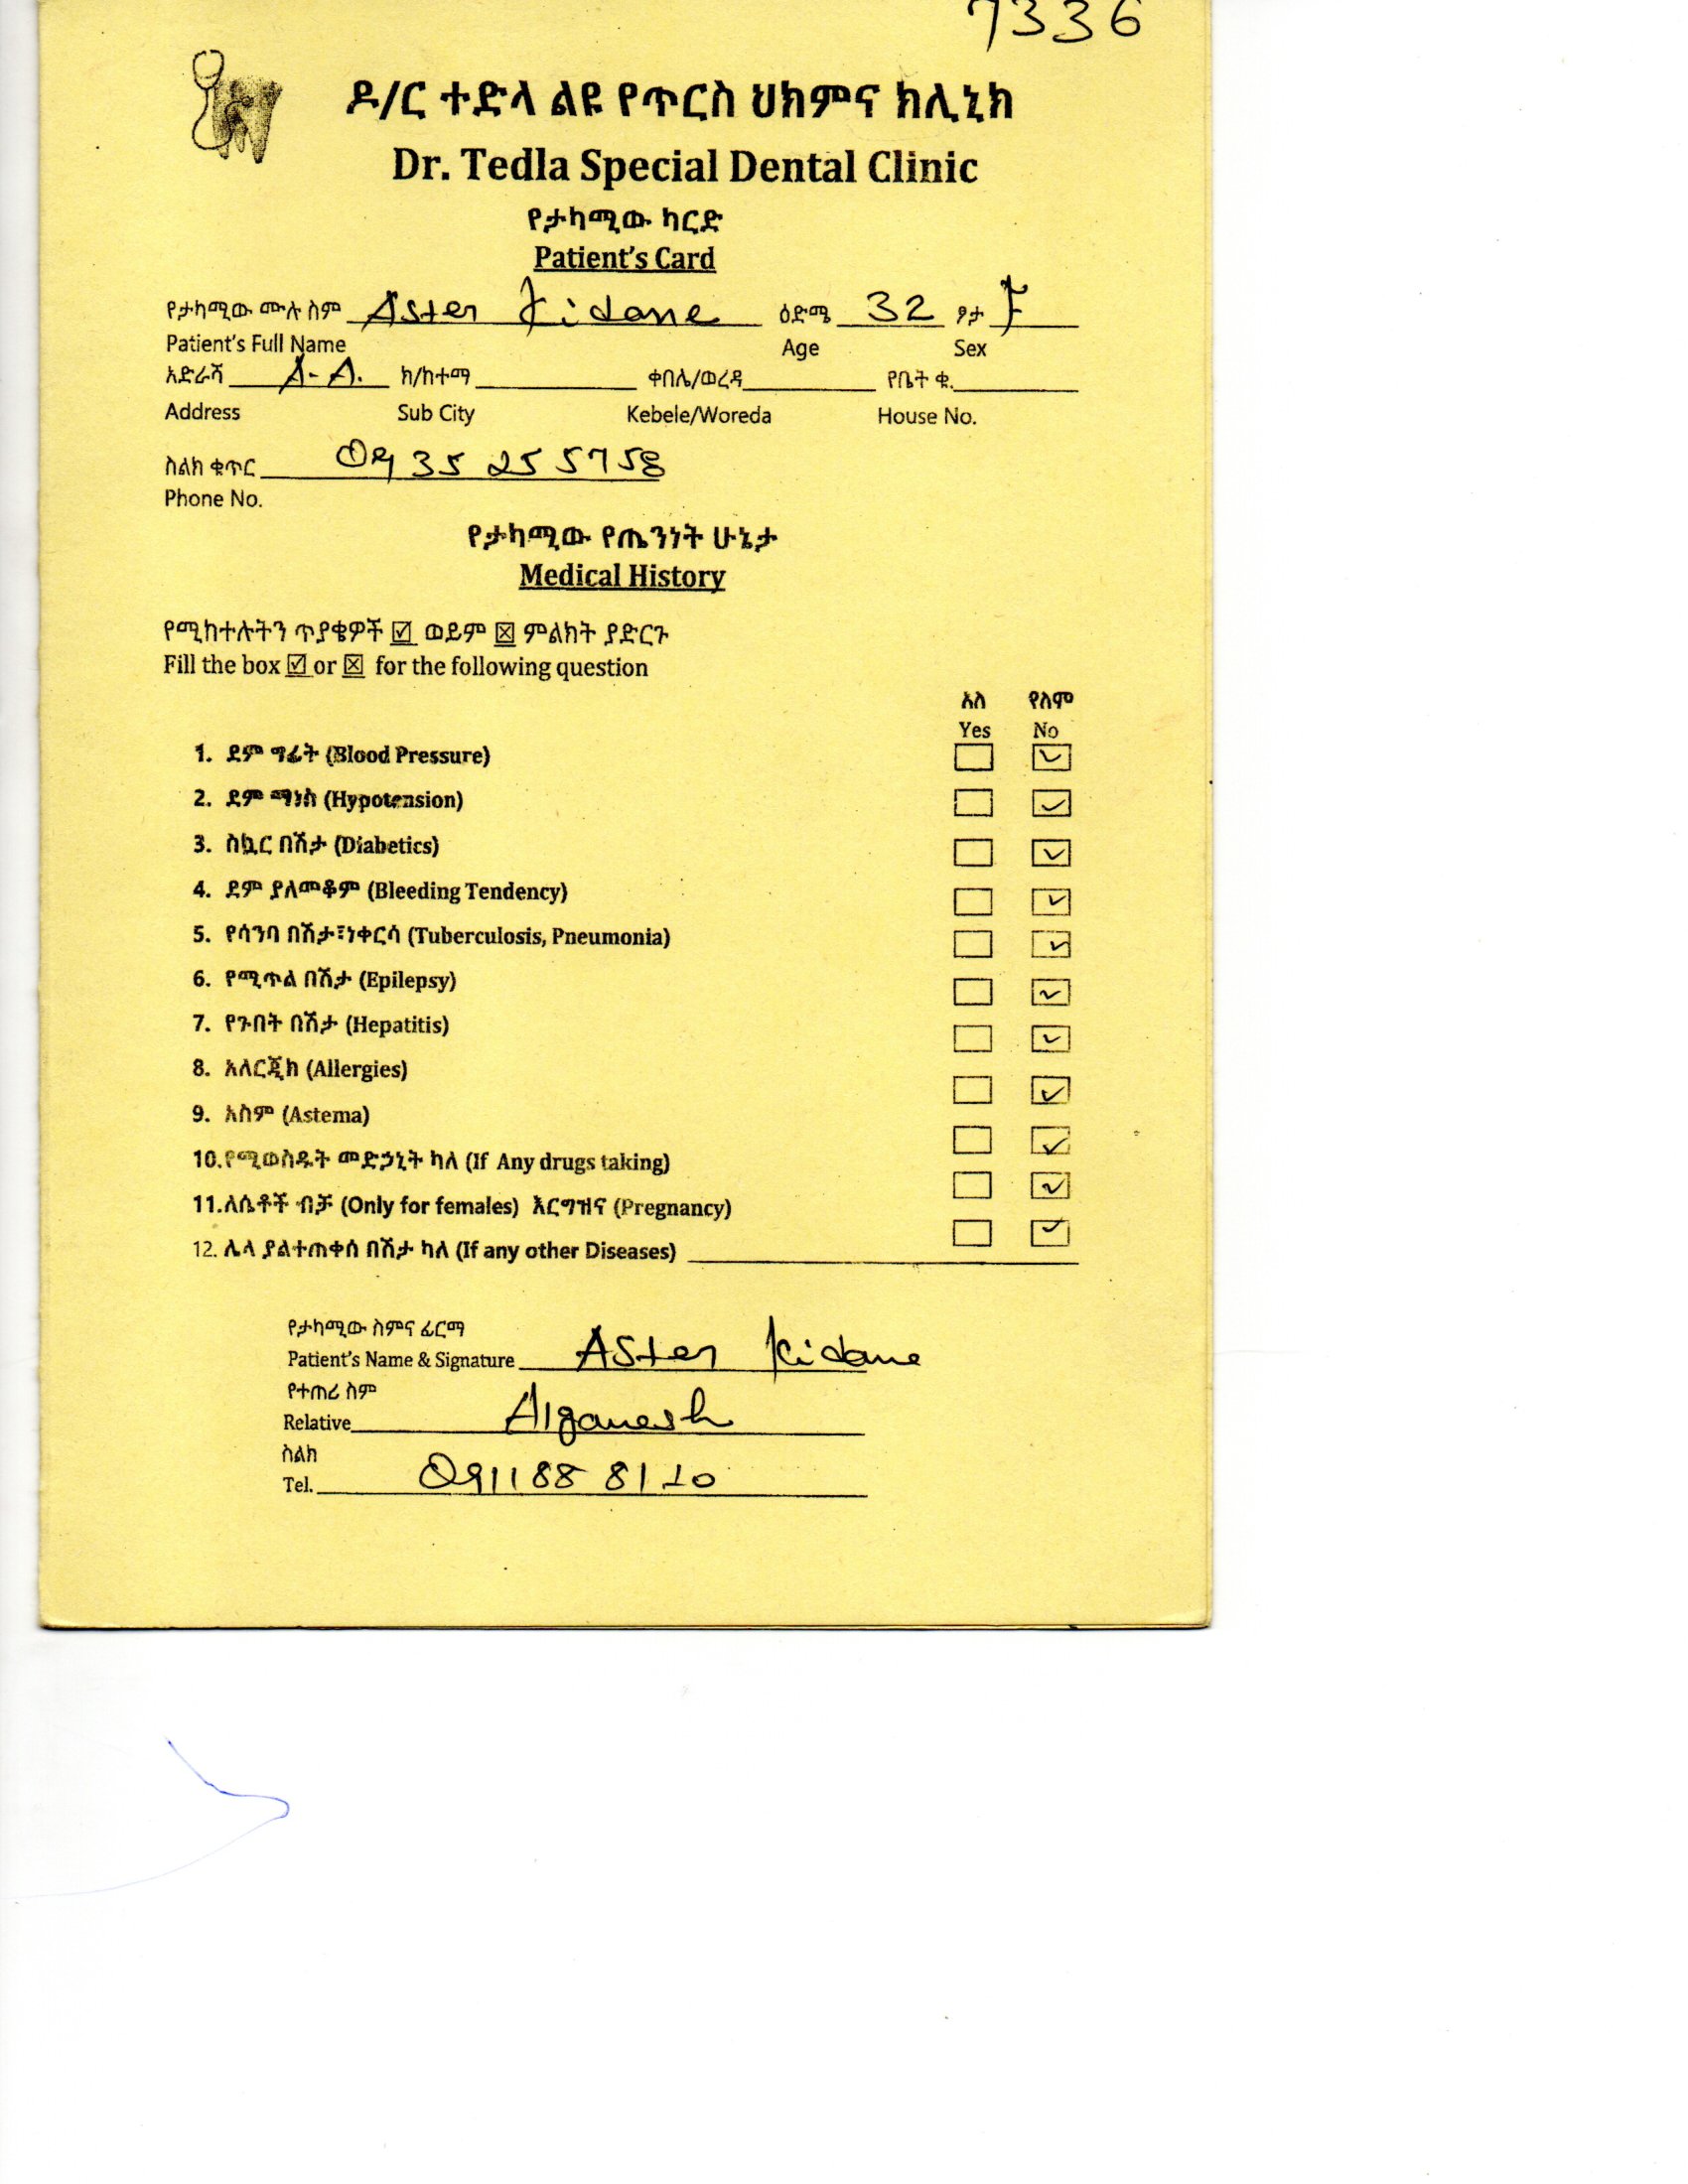 7336
ዶ/ር ተድላ ልዩ የጥርስ ህክምና ክሊኒክ
Dr. Tedla Special Dental Clinic
የታካሚው ካርድ
Patient's Card
የታካሚው ሙሉ ስም Aster Kidane ዕድሜ 32 ፆታ F
Patient's Full Name Age Sex
አድራሻ A-A. ክ/ከተማ ቀበሌ/ወረዳ የቤት ቁ.
Address Sub City Kebele/Woreda House No.
ስልክ ቁጥር 0935255758
Phone No.
የታካሚው የጤንነት ሁኔታ
Medical History
የሚከተሉትን ጥያቄዎች ☑ ወይም ☒ ምልክት ያድርጉ
Fill the box ☑ or ☒ for the following question
አለ የለም
Yes No
1. ደም ግፊት (Blood Pressure) ☐ ☑
2. ደም ማነስ (Hypotension) ☐ ☑
3. ስኳር በሽታ (Diabetics) ☐ ☑
4. ደም ያለመቆም (Bleeding Tendency) ☐ ☑
5. የሳንባ በሽታ፣ነቀርሳ (Tuberculosis, Pneumonia) ☐ ☑
6. የሚጥል በሽታ (Epilepsy) ☐ ☑
7. የጉበት በሽታ (Hepatitis) ☐ ☑
8. አለርጂክ (Allergies) ☐ ☑
9. አስም (Astema) ☐ ☑
10.የሚወስዱት መድኃኒት ካለ (If Any drugs taking) ☐ ☑
11.ለሴቶች ብቻ (Only for females) እርግዝና (Pregnancy) ☐ ☑
12. ሌላ ያልተጠቀሰ በሽታ ካለ (If any other Diseases)
የታካሚው ስምና ፊርማ
Patient's Name & Signature Aster Kidane
የተጠሪ ስም
Relative Alganesh
ስልክ
Tel. 0911888110